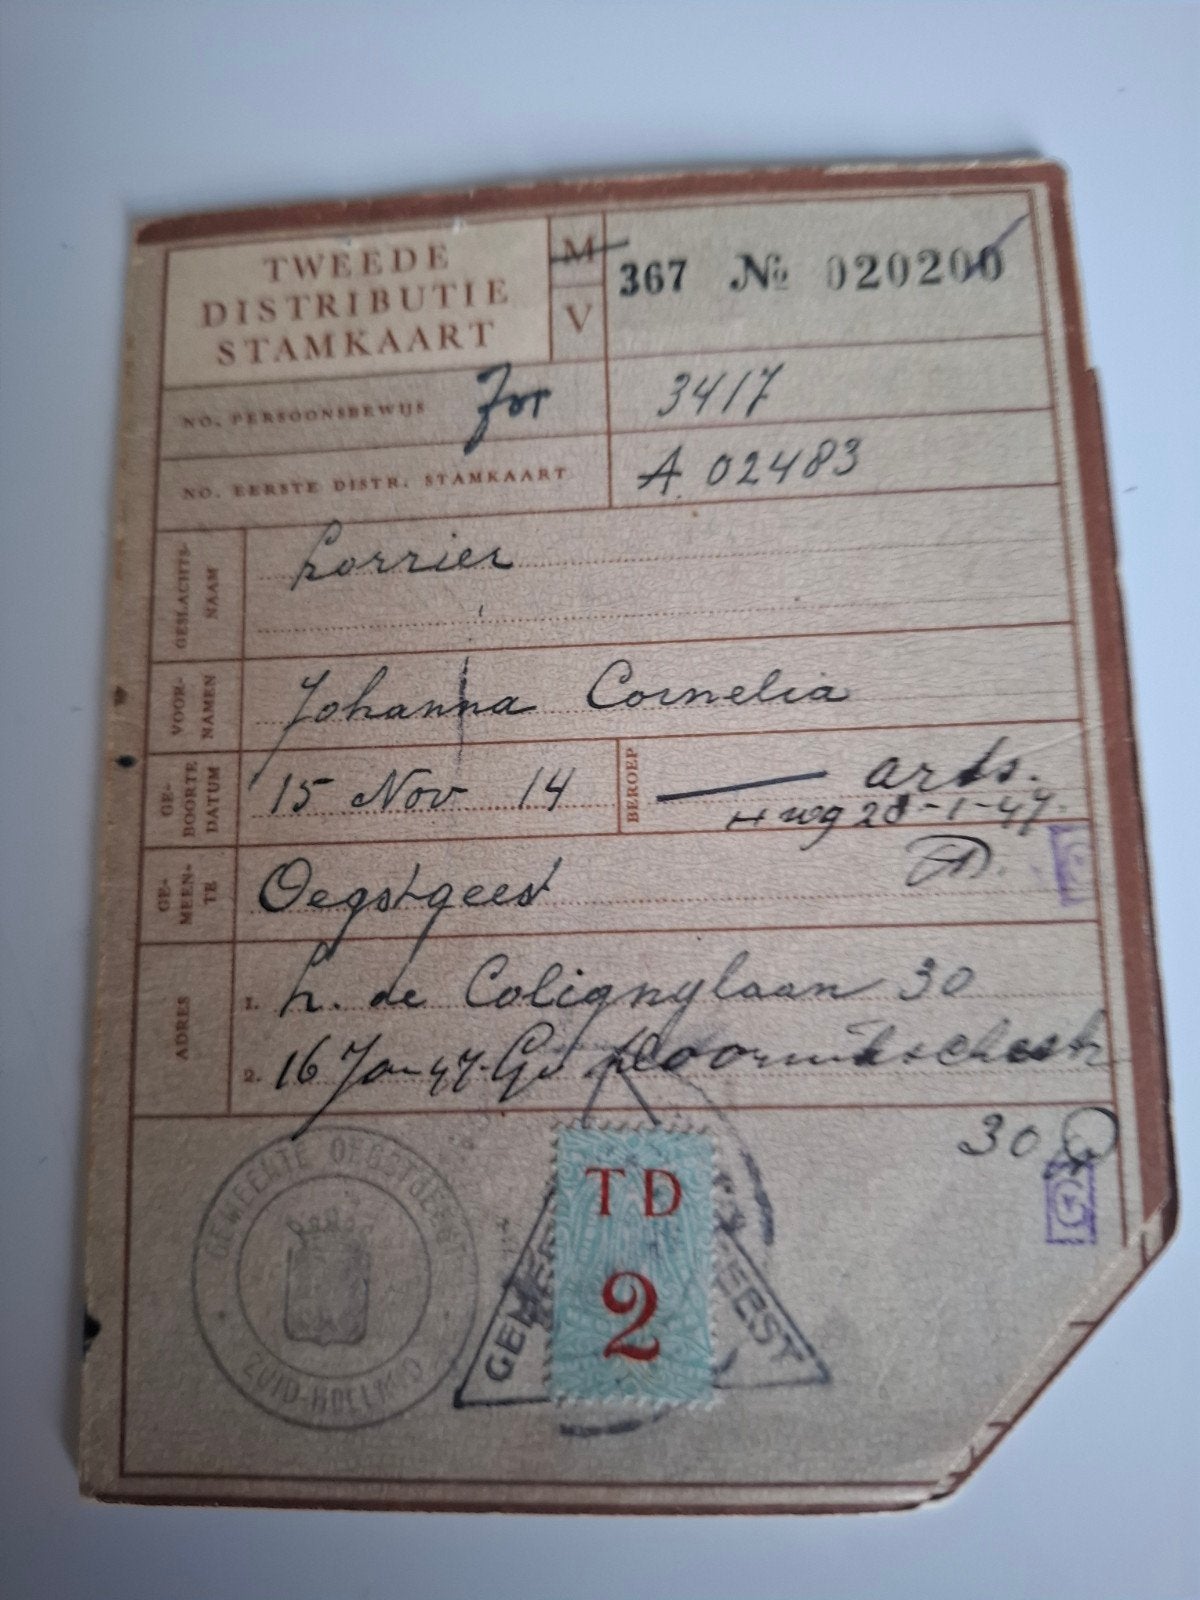 TWEEDE
DISTRIBUTIE
STAMKAART
M
V
367 № 020200
NO. PERSOONSBEWIJS
3417
NO. EERSTE DISTR. STAMKAART
A 02483
GESLACHTS-
NAAM
Lorrier
VOOR-
NAMEN
Johanna Cornelia
GE-
BOORTE
DATUM
15 Nov 14
BEROEP
arts.
28-1-47.
GE-
MEEN-
TE
Oegstgeest
ADRES
1. L. de Colignylaan 30
2. 16 Jan 47.
30
G
GEMEENTE OEGSTGEEST
ZUID-HOLLAND
TD
2